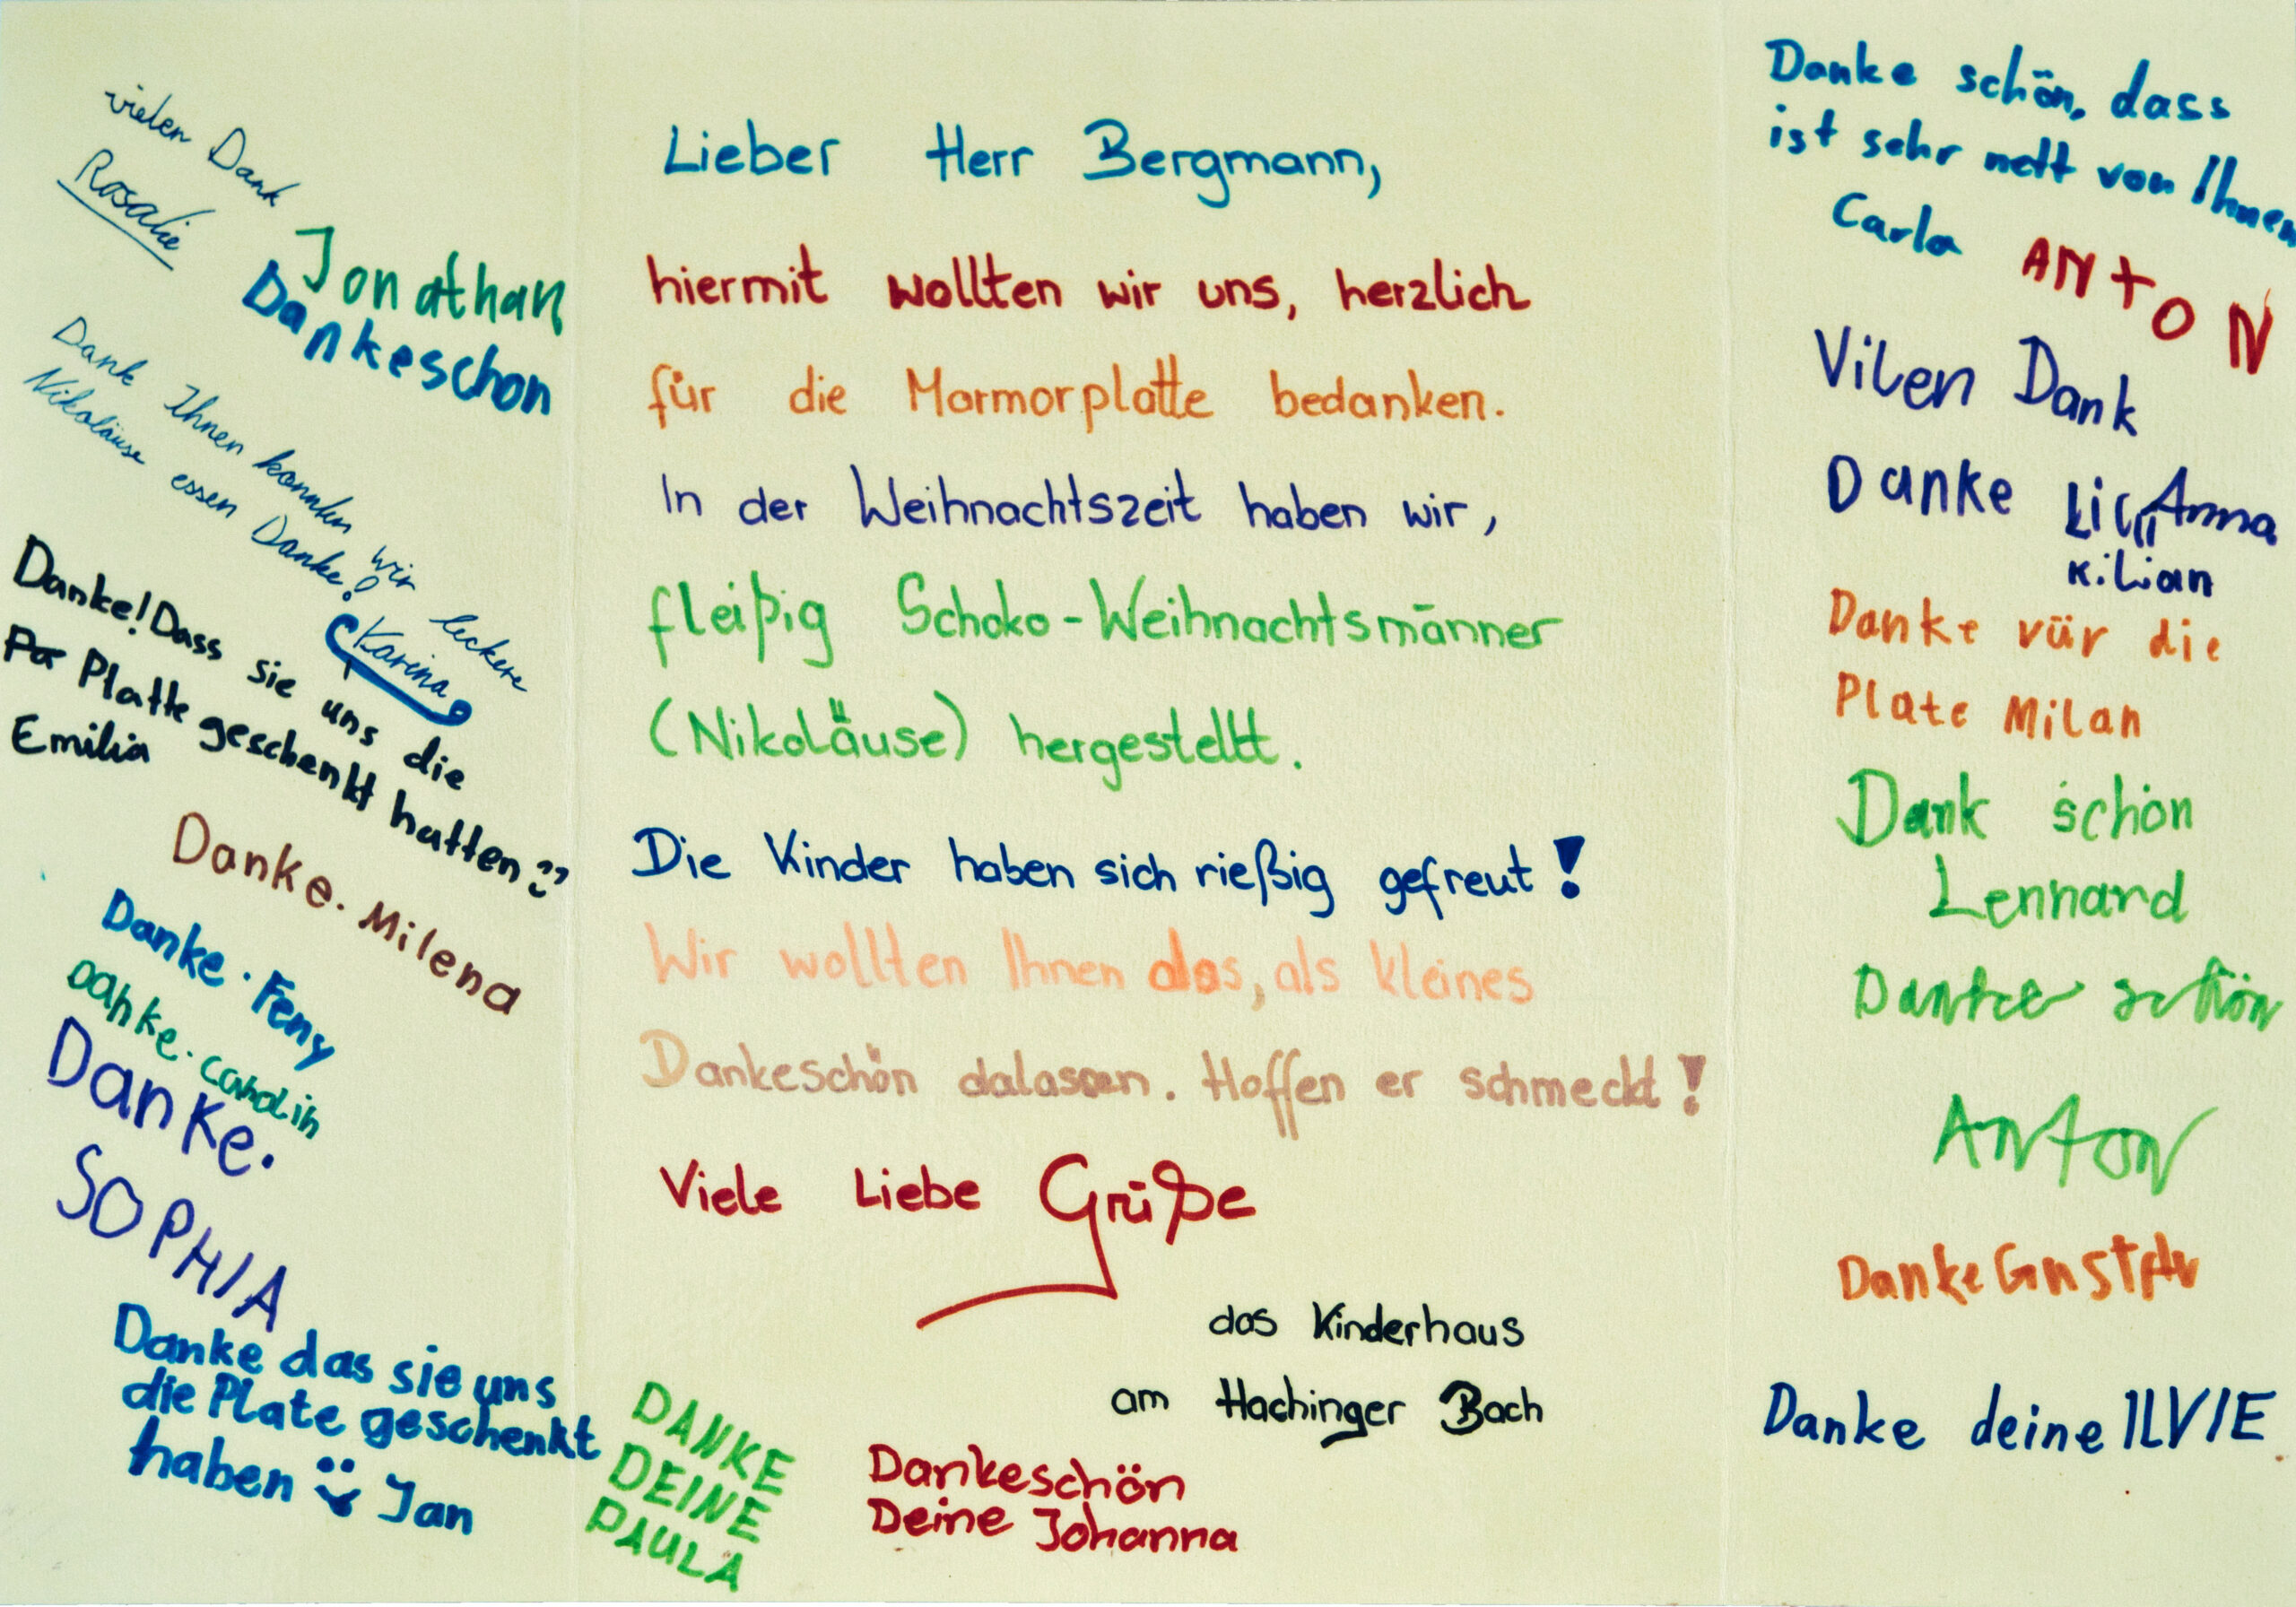 vielen Dank
Rosalie
Jonathan
Dankeschon
Dank Ihnen konnten wir leckere
Nikoläuse essen Danke!
Karina
Danke! Dass sie uns die
Platte geschenkt hatten
Emilia
Danke. Milena
Danke. Feny
Danke. Carolin
Danke.
SOPHIA
Danke das sie uns
die Plate geschenkt
haben Jan
Lieber Herr Bergmann,
hiermit wollten wir uns, herzlich
für die Marmorplatte bedanken.
In der Weihnachtszeit haben wir,
fleißig Schoko-Weihnachtsmänner
(Nikoläuse) hergestellt.
Die Kinder haben sich rießig gefreut!
Wir wollten Ihnen das, als kleines
Dankeschön dalassen. Hoffen er schmeckt!
Viele Liebe Grüße
das Kinderhaus
am Hachinger Bach
DANKE
DEINE
PAULA
Dankeschön
Deine Johanna
Danke schön, dass
ist sehr nett von Ihnen
Carla
ANtON
Vilen Dank
Danke Anna
Kilian
Danke vür die
Plate Milan
Dank schön
Lennard
Danke schön
Anton
Danke Gustav
Danke deine ILVIE